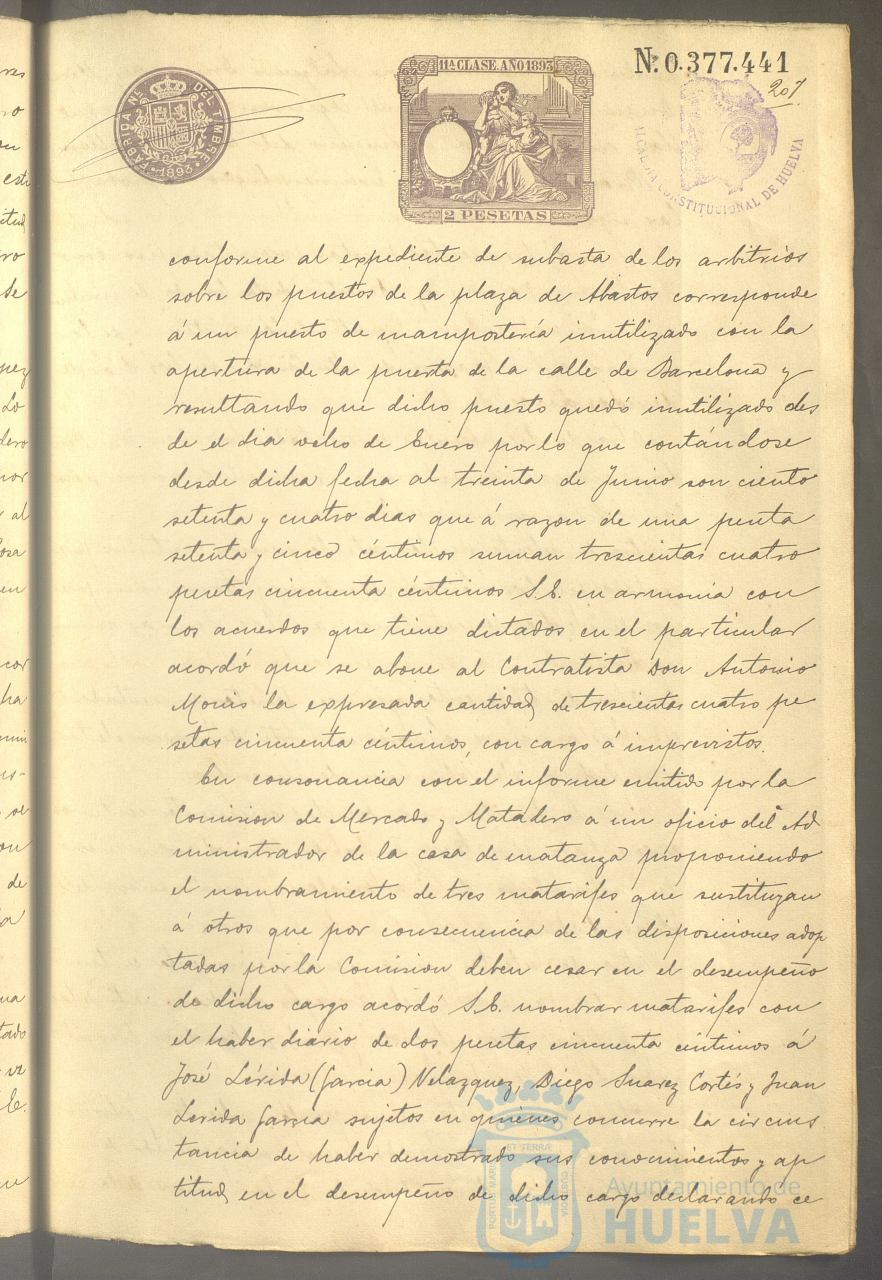 11ª CLASE. AÑO 1893
Nº 0.377.441
207
FABRICA Nª DEL TIMBRE
1893
2 PESETAS
CONSTITUCIONAL DE HUELVA
conforme al expediente de subasta de los arbitrios
sobre los puestos de la plaza de Abastos corresponde
á un puesto de mampostería inutilizado con la
apertura de la puerta de la calle de Barcelona y
resultando que dicho puesto quedó inutilizado des
de el dia ocho de Enero por lo que contándose
desde dicha fecha al treinta de Junio son ciento
setenta y cuatro dias que á razon de una peseta
setenta y cinco céntimos suman trescientas cuatro
pesetas cincuenta céntimos S.E. en armonia con
los acuerdos que tiene dictados en el particular
acordó que se abone al Contratista Don Antonio
Monis la expresada cantidad de trescientas cuatro pe
setas cincuenta céntimos, con cargo á imprevistos.
En consonancia con el informe emitido por la
Comision de Mercado y Matadero á un oficio del Ad
ministrador de la casa de matanza proponiendo
el nombramiento de tres matarifes que sustituyan
á otros que por consecuencia de las disposiciones adop
tadas por la Comision deben cesar en el desempeño
de dicho cargo acordó S.E. nombrar matarifes con
el haber diario de dos pesetas cincuenta céntimos á
José Lérida (Garcia) Velazquez, Diego Suarez Cortés y Juan
Lerida Garcia sujetos en quienes concurre la circuns
tancia de haber demostrado sus conocimientos y ap
titud en el desempeño de dicho cargo declarando ce
Ayuntamiento de
HUELVA